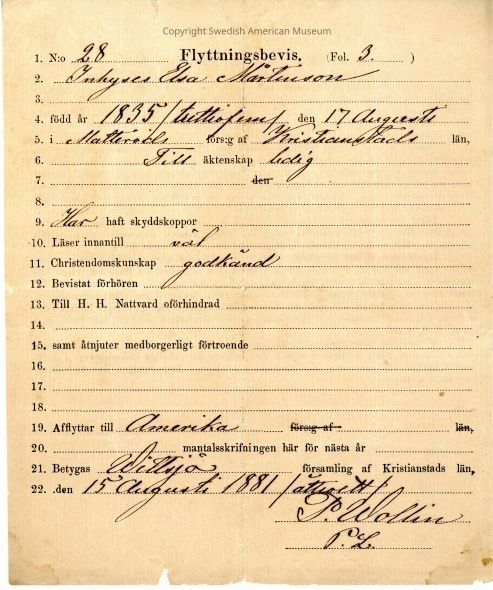 Copyright Swedish American Museum
1. N:o 28 Flyttningsbevis. (Fol. 3. )
2. Inhyses Elsa Mårtenson
3.
4. född år 1835 /trettiofem/ den 17 Augusti
5. i Matteröds förs:g af Kristianstads län,
6. Till äktenskap ledig
7. den
8.
9. Har haft skyddskoppor
10. Läser innantill väl
11. Christendomskunskap godkänd
12. Bevistat förhören
13. Till H. H. Nattvard oförhindrad
14.
15. samt åtnjuter medborgerligt förtroende
16.
17.
18.
19. Afflyttar till Amerika förs:g af län,
20. mantalsskrifningen här för nästa år
21. Betygas Wittsjö församling af Kristianstads län,
22. den 15 Augusti 1881 /åttioett/
P. Wollin
P. L.